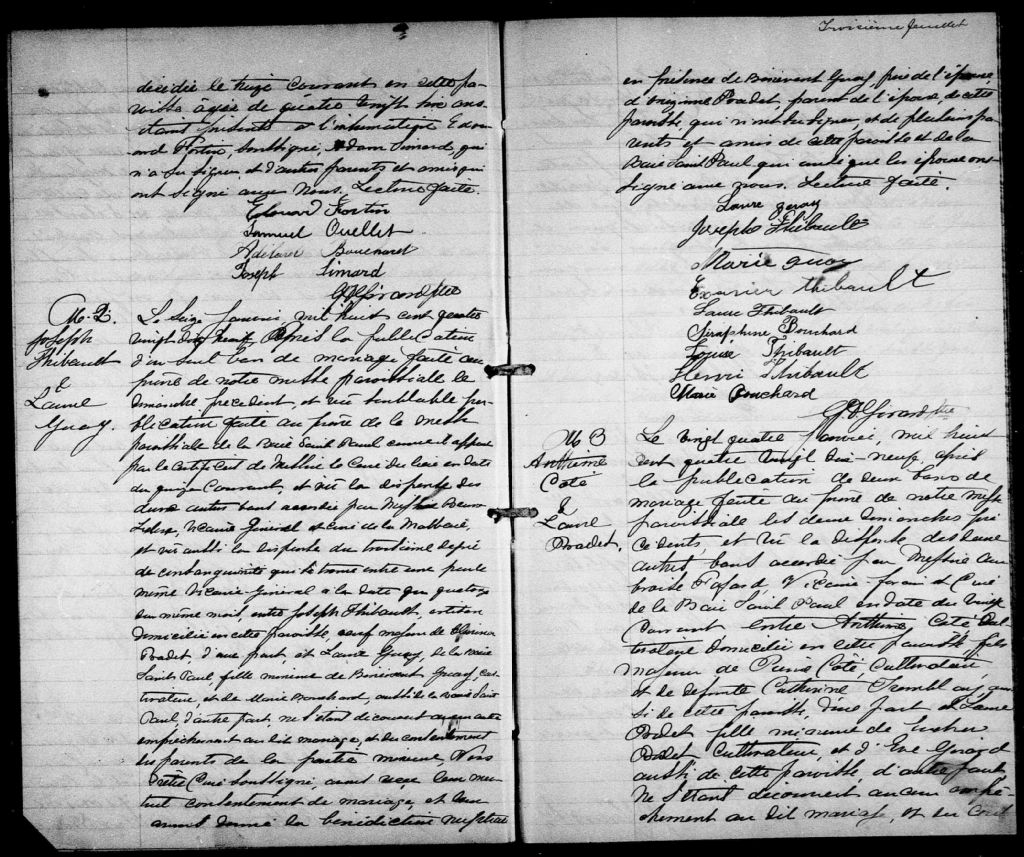 décédée le treize courant en cette pa-
roisse âgée de quatre vingt
étaient présents à l'inhumation Edou-
ard Fortin, soussigné, Adam Simard, qui
n'a su signer et d'autres parents et amis qui
ont signé avec Nous. Lecture faite.
Edouard Fortin
Samuel Ouellet
Adélard Bouchard
Joseph Simard
Girard Ptre
M. 2.
Joseph
Thibault
&
Laure
Guay.
Le seize janvier, mil huit cent quatre
vingt dix neuf, Après la publication
d'un seul ban de mariage faite au
prône de notre messe paroissiale le
dimanche précédent, et vu semblable pu-
blication faite au prône de la messe
paroissiale de la Baie Saint Paul comme il appert
par le certificat de Messire le Curé du lieu en date
du quinze courant, et vu la dispense des
deux autres bans accordée par Messire
Vicaire Général et curé de la Malbaie,
et vu aussi la dispense du troisième degré
de consanguinité qui se trouve entre eux
même Vicaire-Général à la date du quatorze
du même mois, entre Joseph Thibault,
domicilié en cette paroisse, veuf majeur de
Bradet, d'une part, et Laure Guay, de la Baie
Saint Paul fille mineure de Bénévent Guay, cul-
tivateur, et de Marie Bouchard, aussi de la Baie Saint
Paul, d'autre part, ne s'étant découvert aucun autre
empêchement au dit mariage, et du consentement
des parents de la partie mineure, Nous
Prêtre Curé soussigné, avons reçu leur mu-
tuel consentement de mariage, et leur
avons donné la bénédiction nuptiale
Troisième feuillet
en présence de Bénévent Guay, père de l'épouse,
d'Onésime Bradet, parent de l'époux, de cette
paroisse, qui n'ont su signer et de plusieurs pa-
rents et amis de cette paroisse et de la
Baie Saint Paul qui ainsi que les époux ont
signé avec nous. Lecture faite.
Laure guay
Josephe Thibault
Marie guay
Exavier thibault
Laure Thibault
Séraphine Bouchard
Louise Thibault
Henri Thibault
Marie Bouchard
Girard Ptre
M 3
Anthime
Coté
&
Laure
Bradet.
Le vingt quatre janvier, mil huit
cent quatre vingt dix-neuf, après
la publication de deux bans de
mariage faite au prône de notre messe
paroissiale les deux dimanches pré
cédents, et vu la dispense des deux
autres bans accordée par Messire Am
broise Fafard, Vicaire forain et Curé
de la Baie Saint Paul en date du vingt
courant entre Anthime Coté cul
tivateur domicilié en cette paroisse fils
majeur de Pierre Coté, Cultivateur,
et de défunte Catherine Tremblay, aus
si de cette paroisse, d'une part et Laure
Bradet fille mineure de
Bradet Cultivateur, et d'Eve Girard
aussi de cette paroisse, d'autre part,
ne s'étant découvert aucun empê-
chement au dit mariage, et du cons